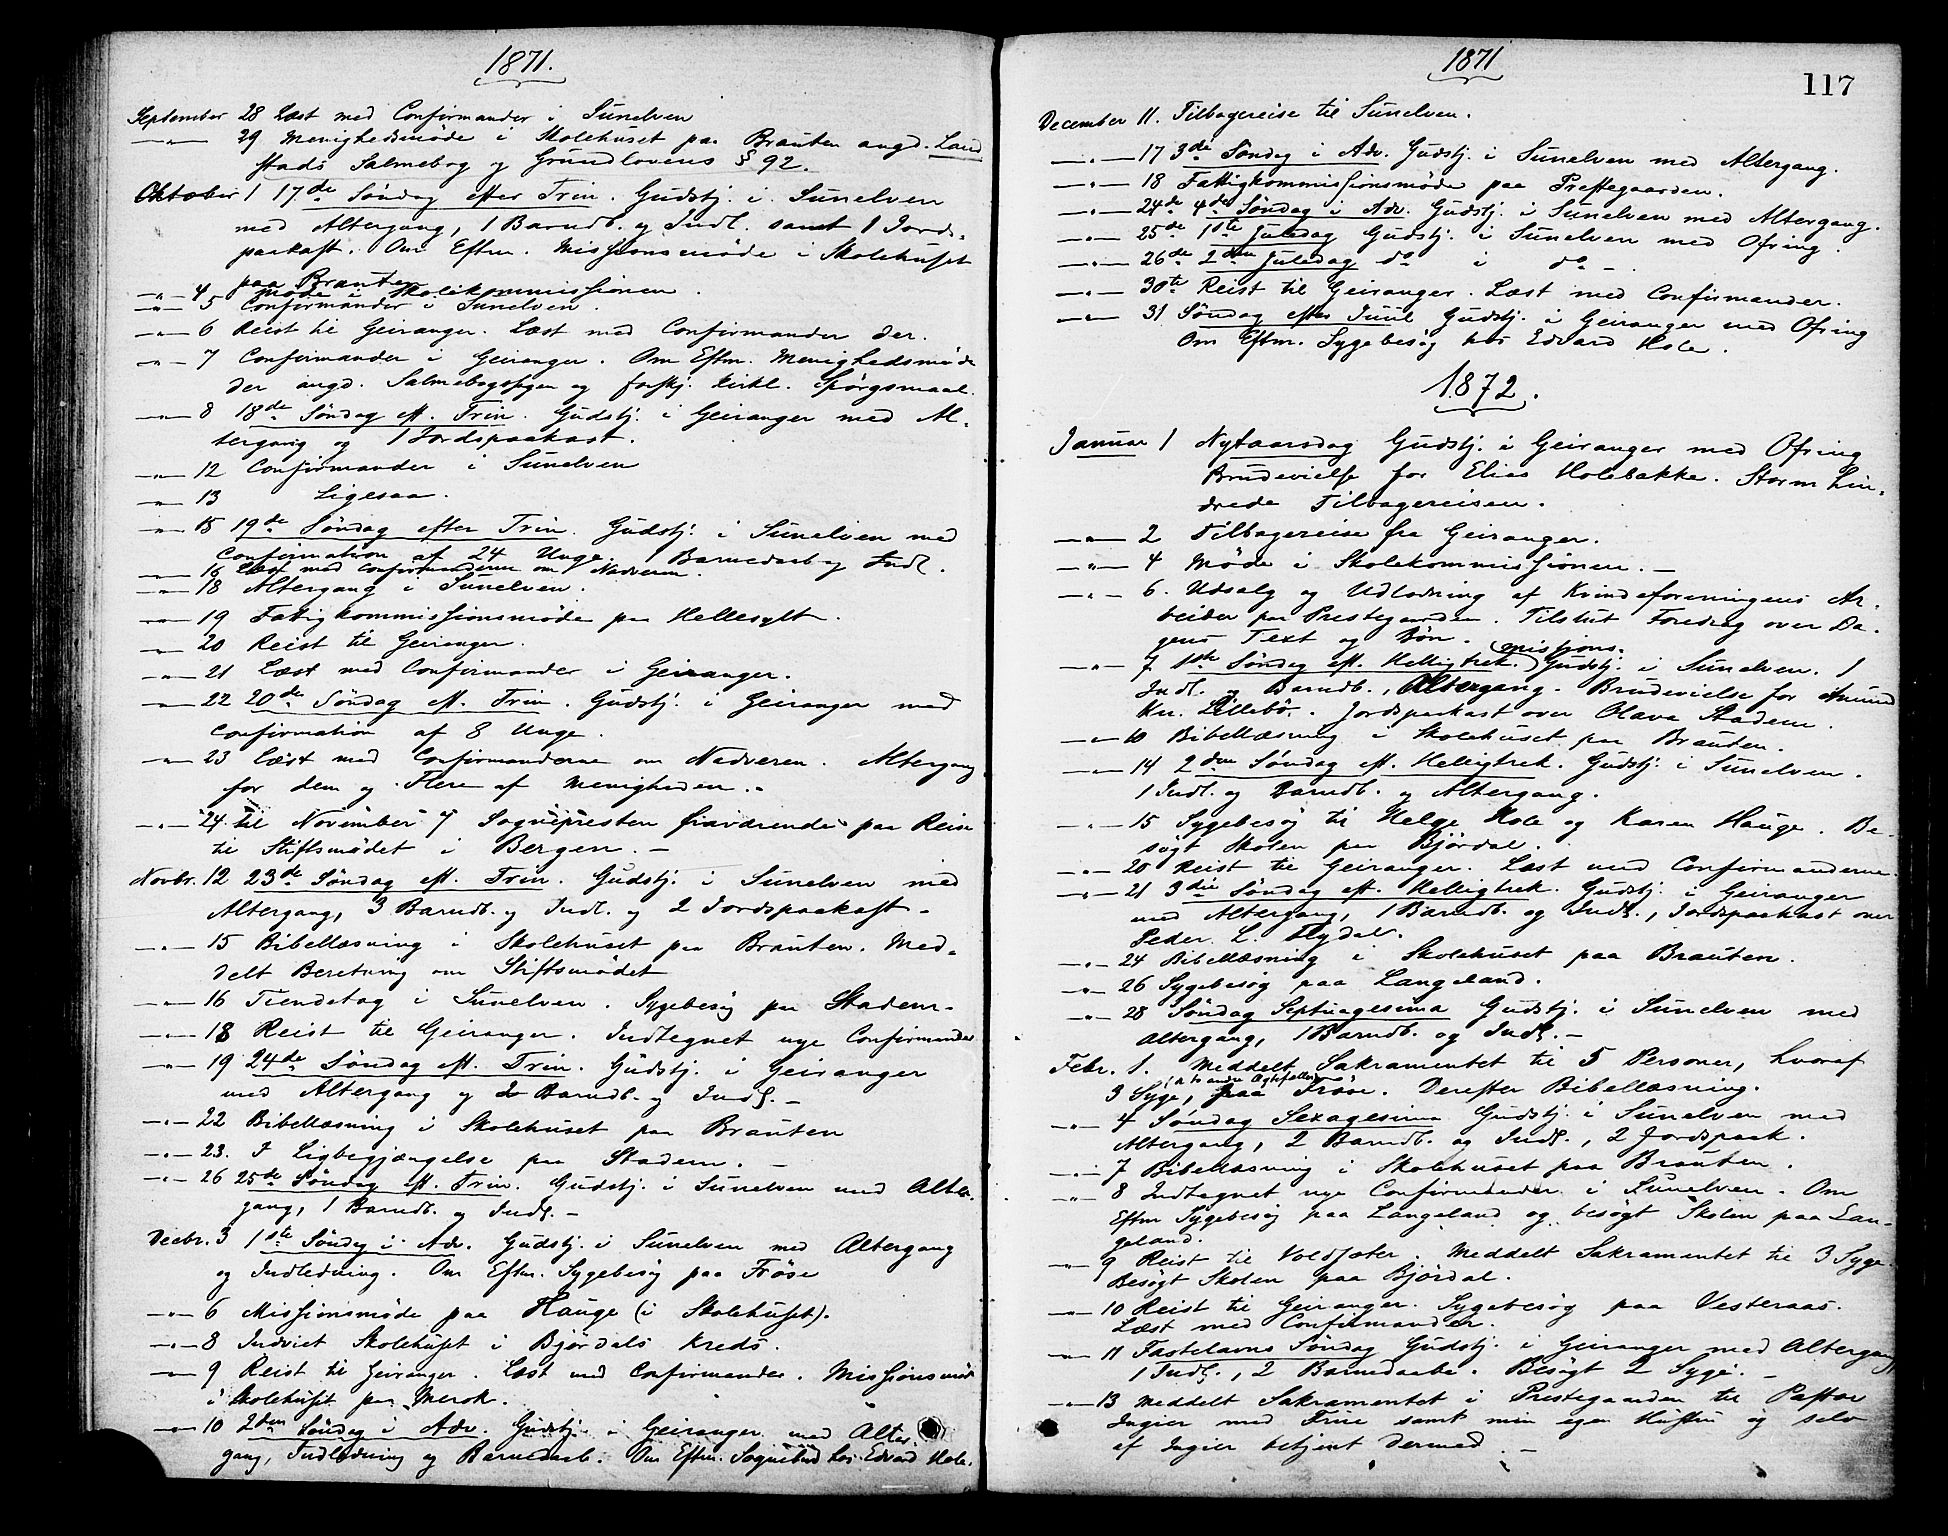 1871.
September 28 Læst med Confirmander i Sunelven
—„— 29 Menighedsmöde i Skolehuset paa Brauten angd. Land
stads Salmebog og Grundlovens § 92.
Oktober 1 17de Söndag efter Trin. Gudstj. i Sunelven
med Altergang, 1 Barndb. og Indl. samt 1 Jords-
paakast. Om Eftm. Missionsmöde i Skolehuset
paa Brauten
—„— 4 Möde i Skolekommissionen.
—„— 5 Confirmander i Sunelven.
—„— 6 Reist til Geiranger. Læst med Confirmander der.
—„— 7 Confirmander i Geiranger. Om Eftm. Menighedsmöde
der angd. Salmebogssagen og forskj. kirkl. Spörgsmaal.
—„— 8 18de Söndag eft. Trin. Gudstj. i Geiranger med Al-
tergang og 1 Jordspaakast.
—„— 12 Confirmander i Sunelven
—„— 13 Ligesaa.
—„— 15 19de Söndag efter Trin. Gudstj. i Sunelven med
Confirmation af 24 Unge. Barnedaab og Indl.
—„— 16 Læst med Confirmanderne om Nadveren.
—„— 18 Altergang i Sunelven.
—„— 19 Fattigkommissionsmöde paa Hellesylt.
—„— 20 Reist til Geiranger.
—„— 21 Læst med Confirmander i Geiranger.
—„— 22 20de Söndag eft. Trin. Gudstj. i Geiranger med
Confirmation af 8 Unge.
—„— 23 Læst med Confirmanderne om Nadveren. Altergang
for dem og Flere af Menigheden.
—„— 24 til November 7 Sognepresten fraværende paa Reise
til Stiftsmödet i Bergen. —
Novbr. 12 23de Söndag eft. Trin. Gudstj. i Sunelven med
Altergang, 3 Barndb. og Indl. og 2 Jordspaakast.
—„— 15 Bibellæsning i Skolehuset paa Brauten. Med-
delt Beretning om Stiftsmödet
—„— 16 Tiendetag i Sunelven. Sygebesög paa Stadem.
—„— 18 Reist til Geiranger. Indtegnet nye Confirmander
—„— 19 24de Söndag eft. Trin. Gudstj. i Geiranger
med Altergang og Barndb. og Indl. —
—„— 22 Bibellæsning i Skolehuset paa Brauten
—„— 23. I Ligbegjængelse paa Stadem. —
—„— 26 25de Söndag eft. Trin. Gudstj. i Sunelven med Alter-
gang, 1 Barndb. og Indl. —
Decbr. 3 1ste Söndag i Adv. Gudstj. i Sunelven med Altergang
og Indledning. Om Eftm. Sygebesög paa Fröse
—„— 6 Missionsmöde paa Hauge (i Skolehuset).
—„— 8 Indviet Skolehuset i Björdals Kreds.
—„— 9 Reist til Geiranger. Læst med Confirmander. Missionsmöde
i Skolehuset paa Merok.
—„— 10 2den Söndag i Adv. Gudstj. i Geiranger med Alter
gang, Indledning og Barnedaab. Om Eftm. Sognebud hos Edvard Hole.
1871
117
December 11. Tilbagereise til Sunelven.
—„— 17 3de Söndag i Adv. Gudstj. i Sunelven med Altergang.
—„— 18 Fattigkommissionsmöde paa Prestegaarden.
—„— 24de 4de Söndag i Adv. Gudstj. i Sunelven med Altergang.
—„— 25de 1ste Juledag Gudstj. i Sunelven med Ofring.
—„— 26de 2den Juledag do i do —.
—„— 30te Reist til Geiranger. Læst med Confirmander.
—„— 31 Söndag efter Juul Gudstj. i Geiranger med Ofring
Om Eftm. Sygebesög hos Edvard Hole.
1872.
Januar 1 Nytaarsdag Gudstj. i Geiranger med Ofring
Brudevielse for Elias Holebakke. Storm hin-
drede Tilbagereisen.
—„— 2 Tilbagereise fra Geiranger.
—„— 4 Möde i Skolekommissionen. —
—„— 6. Udsalg og Udlodning af Kvindeforeningens Ar-
beider paa Prestegaarden. Tilslut Foredrag over Da-
gens Text og Bön.
—„— 7 1ste Söndag eft. Helligtrek. Missjons. Gudstj. i Sunelven. 1
Indl. og Barndb., Altergang. Brudevielse for Amund
Kn. Lillebö. Jordspaakast over Olava Stadem.
—„— 10 Bibellæsning i Skolehuset paa Brauten.
—„— 14 2den Söndag eft. Helligtrek. Gudstj. i Sunelven.
1 Indl. og Barndb. og Altergang.
—„— 15 Sygebesög til Helge Hole og Karen Hauge. Be-
sögt Skolen paa Björdal.
—„— 20 Reist til Geiranger. Læst med Confirmanderne
—„— 21 3die Söndag eft. Helligtrek. Gudstj. i Geiranger
med Altergang, 1 Barndb. og Indl., Jordspaakast over
Peder L. Flydal.
—„— 24 Bibellæsning i Skolehuset paa Brauten.
—„— 26 Sygebesög paa Langeland.
—„— 28 Söndag Septuagesima Gudstj. i Sunelven med
Altergang, 1 Barndb. og Indl. —
Febr. 1. Meddelt Sakramentet til 5 Personer, hvoraf
3 Syge, paa Fröse. Derefter Bibellæsning.
—„— 4 Söndag Sexagesima Gudstj. i Sunelven med
Altergang, 2 Barndb. og Indl., 2 Jordspaak.
—„— 7 Bibellæsning i Skolehuset paa Brauten.
—„— 8 Indtegnet nye Confirmander i Sunelven. Om
Eftm Sygebesög paa Langeland og besögt Skolen paa Lan-
geland.
—„— 9 Reist til Voldsæter. Meddelt Sakramentet til 3 Syge.
Besögt Skolen paa Björdal.
—„— 10 Reist til Geiranger. Sygebesög paa Vesteraas.
Læst med Confirmander.
—„— 11 Fastelavns Söndag Gudstj. i Geiranger med Altergang
1 Indl., 2 Barnedaabe. Besögt 2 Syge. —
—„— 13 Meddelt Sakramentet i Prestegaarden til Pastor
Ingier med Frue samt min egen Hustru og selv
af Ingier betjent dermed. —